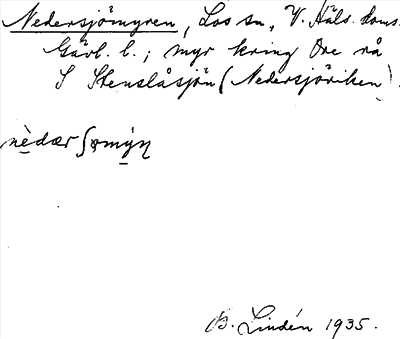 Nedersjömyren, Los sn, V. Häls. doms.
Gävl. l.; myr kring Ore rå
S Stenslåsjön (Nedersjöviken).
nèdær ʃømýn
B. Lindén 1935.